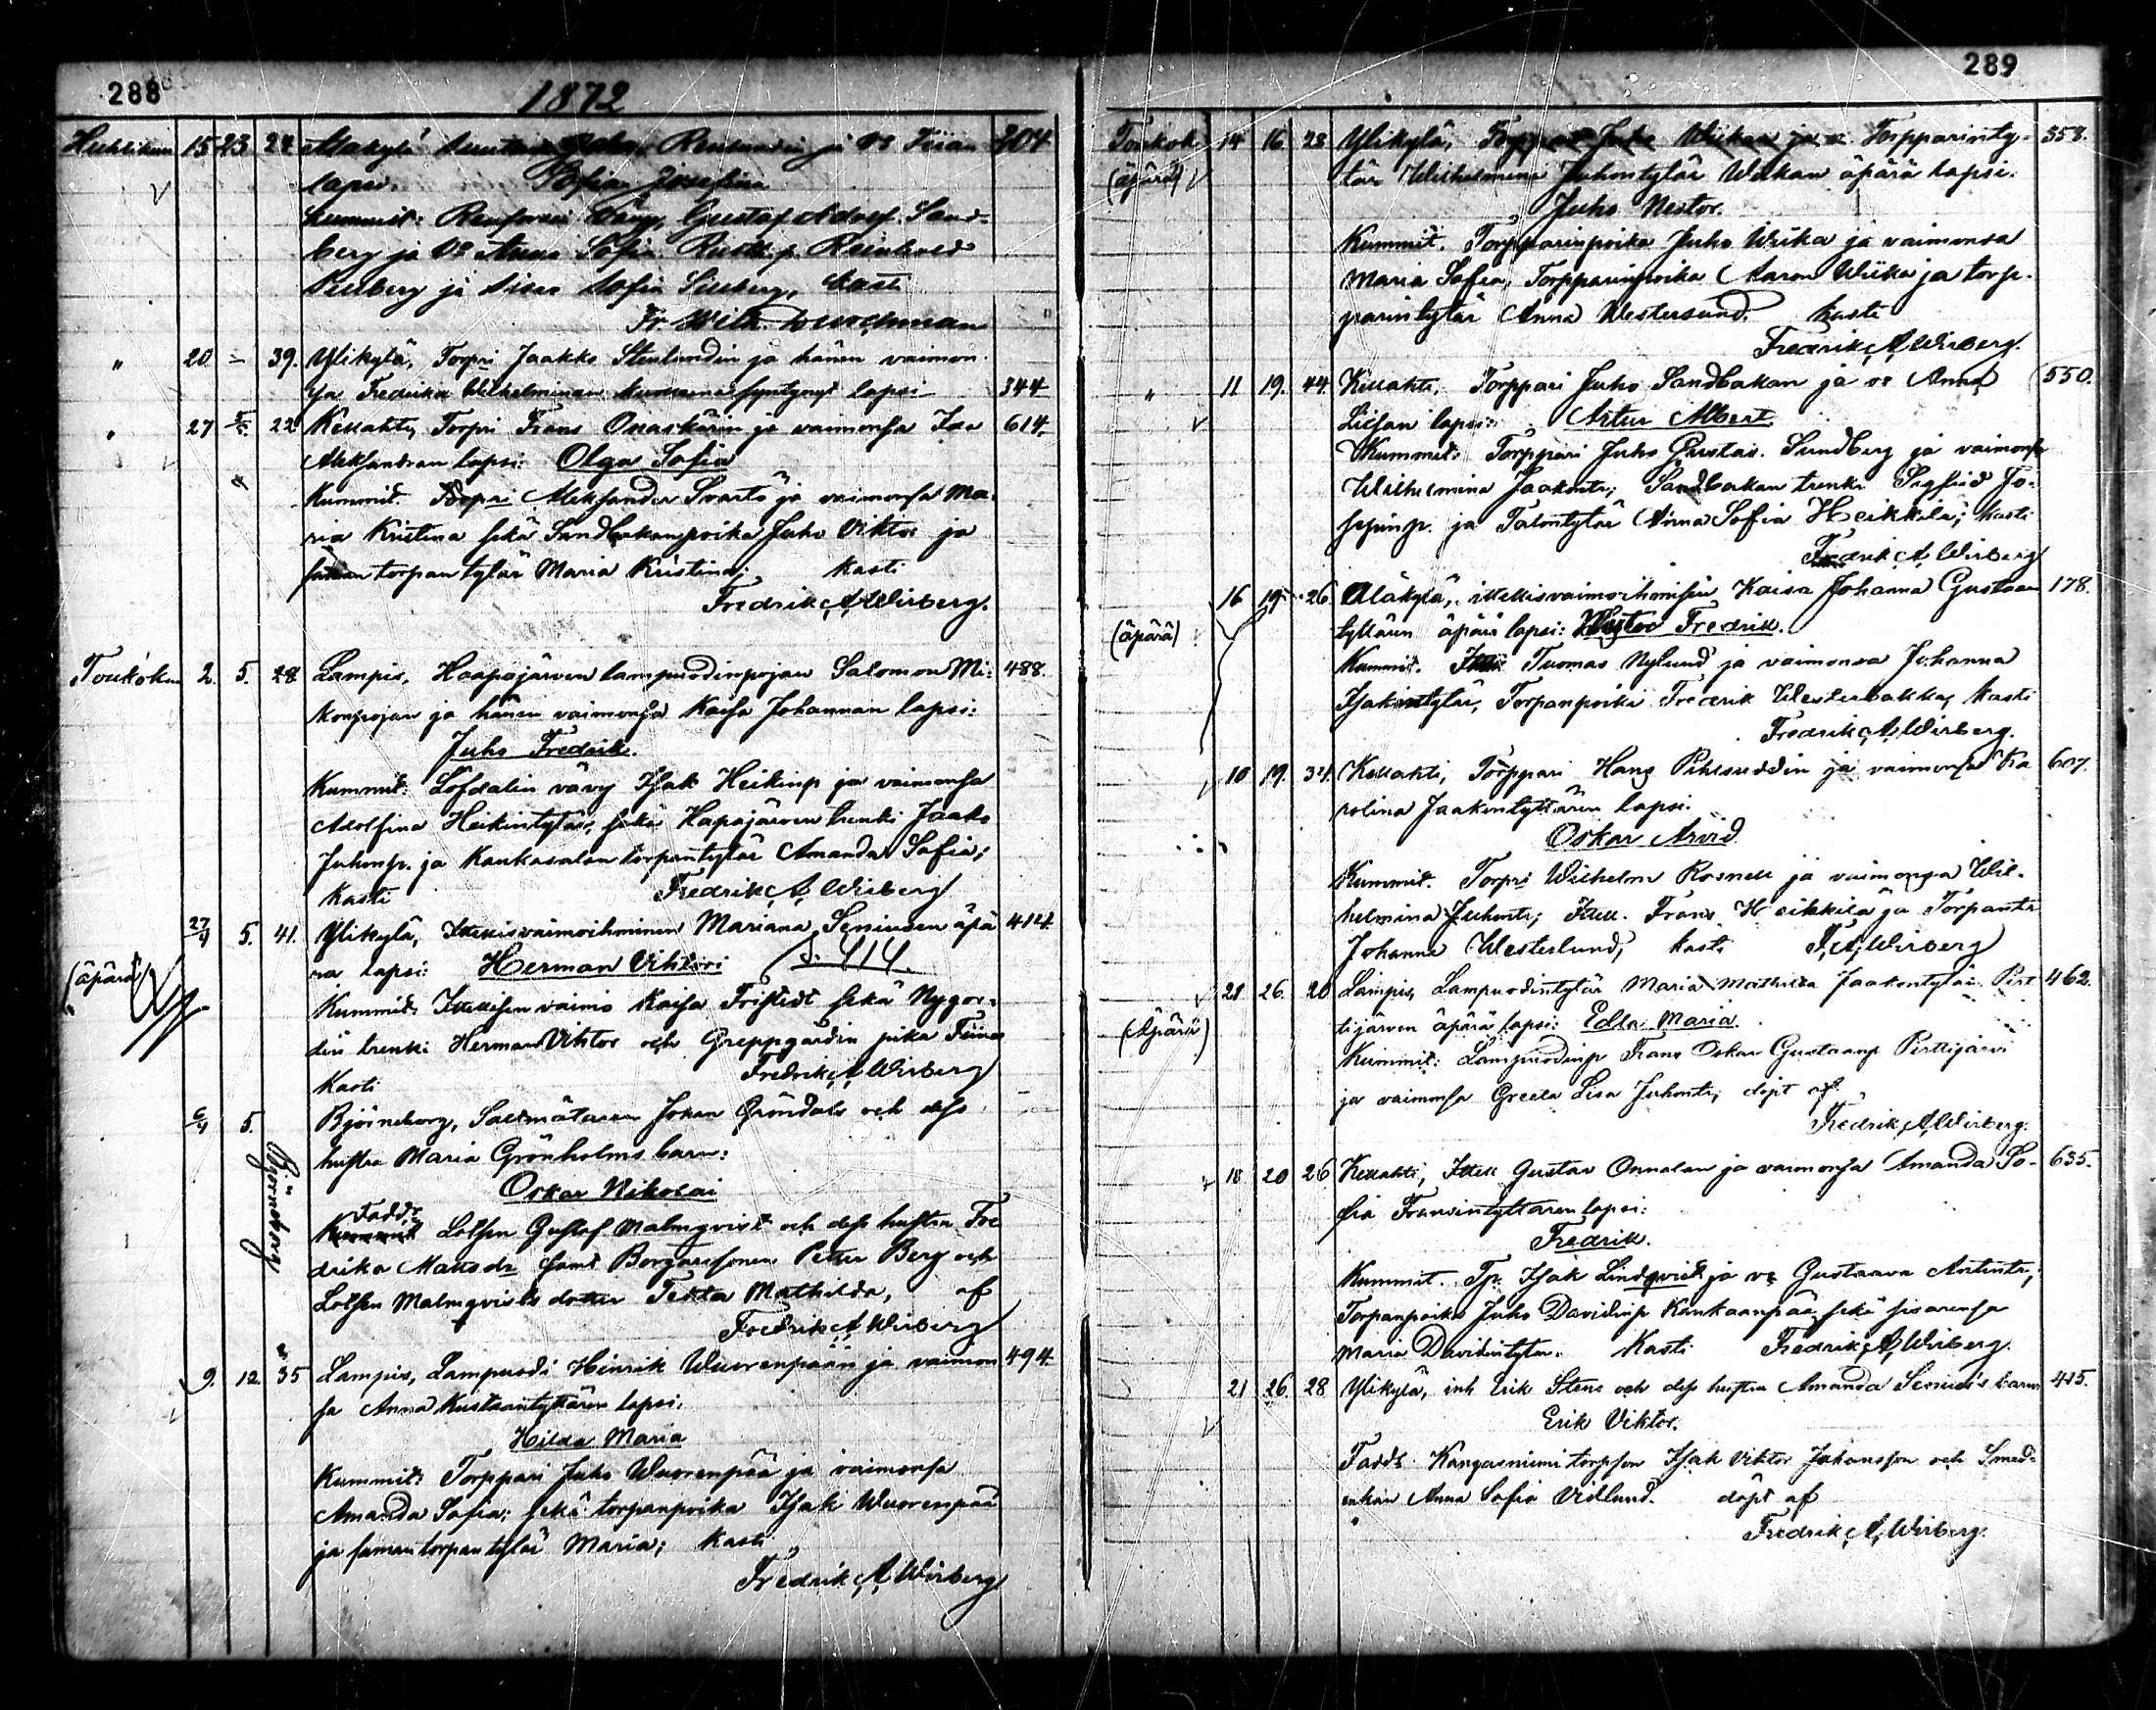 288
1872
Huhtikuu 15 23 24 Alakylä ja vo 304
lapsi: Sofia Josefina
Kummit: Gustaf Adolf Sand-
berg ja vo Anna Sofia Reinhold
ja Sofia kasti
Fr. Wilh.
" 20 – 39. Ylikylä, Torpri Jaakko Stenlundin ja hänen vaimon-
sa Fredrika Wilhelminan kuolleena syntynyt lapsi 344
" 27 5/5 22 Kellahti, Torpri Frans Onaskärin ja vaimonsa Ida 614.
Aleksandran lapsi: Olga Sofia
Kummit. Torpri Aleksander Svartö ja vaimonsa Ma-
ria Kristina sekä Sandbakan poika Juho Viktor ja
saman torpan tytär Maria Kristina; kasti
Fredrik A. Wirberg.
Toukokuu 2. 5. 28 Lampis, Haapajärven lampuodinpojan Salomon Mi- 488.
konpojan ja hänen vaimonsa Kaisa Johannan lapsi:
Juho Fredrik.
Kummit: Löfdalin vävy Isak Heikinp ja vaimonsa
Adolfina Heikintytär, sekä Hapajärven trenki Jaako
Juhonp. ja Kankasalan torpantytär Amanda Sofia;
kasti Fredrik A. Wirberg
(äpärä) 27/4 5. 41. Ylikylä, Itellisvaimoihminen Mariana Seniusen äpä 414.
rä lapsi: Herman Vihtori S. 414.
Kummit: Itellisen vaimo Kaisa Fristedt sekä Nygor-
din trenki Herman Viktor och Greppgårdin piika Tiina
Kasti Fredrik A. Wirberg
6/4 5. Björneborg Björneborg, Saltmätaren Johan Gröndals och dess
hustru Maria Grönholms barn:
Oskar Nikolai
Faddr
Kummit Lotsen Gustaf Malmqvist och dess hustru Fre
drika Matsdr samt Borgaresonen Petter Berg och
Lotsen Malmqvists dotter Tekla Mathilda, af
Fredrik A. Wirberg
9. 12. 35 Lampis, Lampuodi Hinrik Wuorenpään ja vaimon 494
sa Anna Kustaantyttären lapsi.
Hilda Maria
Kummit: Torppari Juho Wuorenpää ja vaimonsa
Amanda Sofia; sekä torpanpoika Isak Wuorenpää
ja saman torpan tytär Maria; kasti
Fredrik A. Wirberg
289
Toukok (äpärä) 14 16 28 Ylikylä, Torppari Juho Wiikan ja Torpparinty- 358.
tär Wilhelmina Juhontytär Wiikan äpärä lapsi.
Juho Nestor.
Kummit. Torpparinpoika Juho Wiika ja vaimonsa
Maria Sofia, Torpparinpoika Aaron Wiika ja torp-
parintytär Anna Westersund. kasti
Fredrik A. Wirberg.
" 11 19. 44. Kellahti, Torppari Juho Sandbakan ja vo Anna 550.
Liisan lapsi: Artur Albert
Kummit: Torppari Juho Gustav Sundberg ja vaimonsa
Wilhelmina Jaakontr; Sandbakan trenki Sigfrid Jo-
sepinp. ja Talontytär Anna Sofia Heikkilä; kasti
Fredrik A. Wirberg
(äpärä) 16 19 26 Alakylä, itellisvaimoihmisen Kaisa Johanna Gustaan 178.
tyttären äpärä lapsi: Fredrik.
Kummit. Tuomas Nylund ja vaimonsa Johanna
Isakintytär, Torpanpoika Fredrik Westerbakka, kasti
Fredrik A. Wirberg.
10 19. 34. Kellahti, Torppari Hans ja vaimonsa Ka 607.
rolina Jaakontyttären lapsi.
Oskar Arvid
Kummit. Torpri Wilhelm Rosnell ja vaimonsa Wil-
helmina Juhontr; Itell. Frans Heikkilä ja Torpantr
Johanna Westerlund; kasti F. A. Wirberg
(Äpärä) 21 26. 20 Lampis, Lampuodintytär Maria Mathilda Jaakontytär Pirt 462.
tijärven äpärä lapsi: Edla Maria.
Kummit: Lampuodinp Frans Oskar Gustaanp Pirttijärvi
ja vaimonsa Greeta Lisa Juhontr; döpt af
Fredrik A. Wirberg.
18 20 26 Kellahti, Itell Gustav Onnelan ja vaimonsa Amanda So- 635.
fia Fransintyttären lapsi:
Fredrik.
Kummit. Tp. Isak Lindqvist ja vo Gustaava Antintr;
Torpanpoika Juho Davidinp Kankaanpää sekä sisarensa
Maria Davidintytär. Kasti Fredrik A. Wirberg.
21 26. 28 Ylikylä, inh Erik Stens och dess hustru Amanda Senius's barn 415.
Erik Viktor.
Fadds. Kangasniemi torpson Isak Viktor Johansson och Smeds-
enkan Anna Sofia Vidlund. döpt af
Fredrik A. Wirberg.